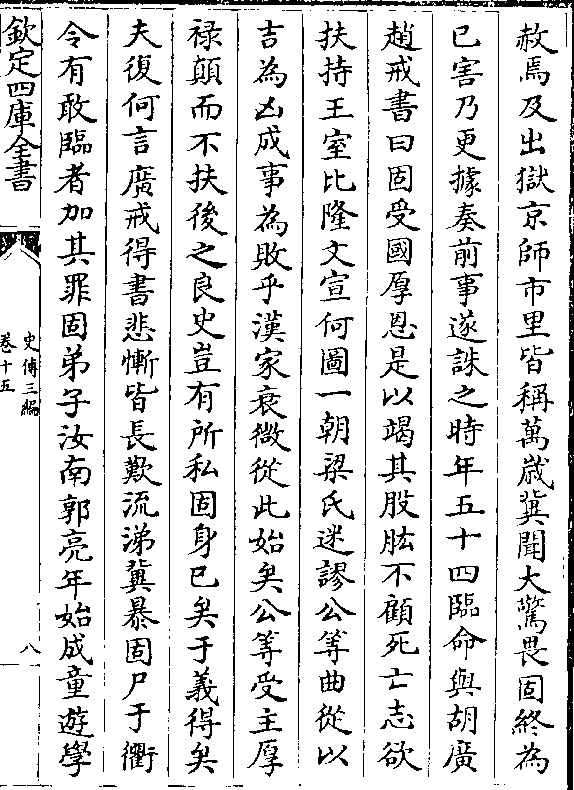 赦焉及出獄京師市里皆稱萬歳冀聞大驚畏固終為
已害乃更據奏前事遂誅之時年五十四臨命與胡廣
趙戒書曰固受國厚恩是以竭其股肱不顧死亡志欲
扶持王室比隆文宣何圖一朝梁氏迷謬公等曲從以
吉為凶成事為敗乎漢家衰微從此始矣公等受主厚
禄顛而不扶後之良史豈有所私固身已矣于義得矣
夫復何言廣戒得書悲慚皆長歎流涕冀暴固尸于衢
令有敢臨者加其罪固弟子汝南郭亮年始成童遊學
欽定四庫全書
史傳三編
卷十五
八